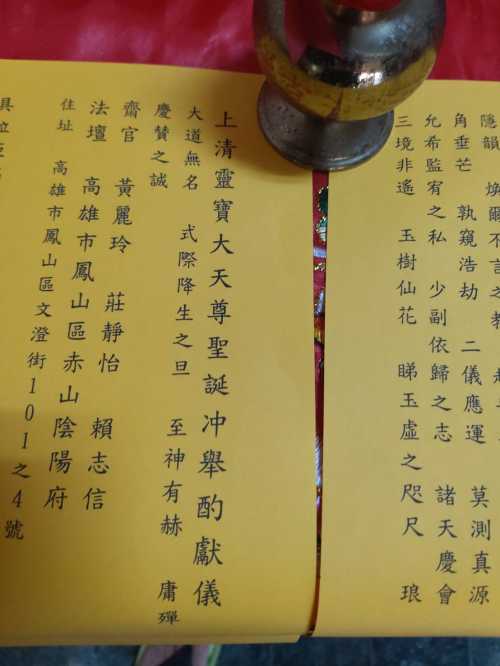 隱韻 煥爾不言之教
角垂芒 孰窺浩劫 二儀應運 莫測真源
允希監宥之私 少副依歸之志 諸天慶會
三境非遙 玉樹仙花 睇玉虛之咫尺 琅
上清靈寶大天尊聖誕冲舉酌獻儀
大道無名 式際降生之旦 至神有赫 庸殫
慶贊之誠
齋官 黃麗玲 莊靜怡 賴志信
法壇 高雄市鳳山區赤山陰陽府
住址 高雄市鳳山區文澄街101之4號